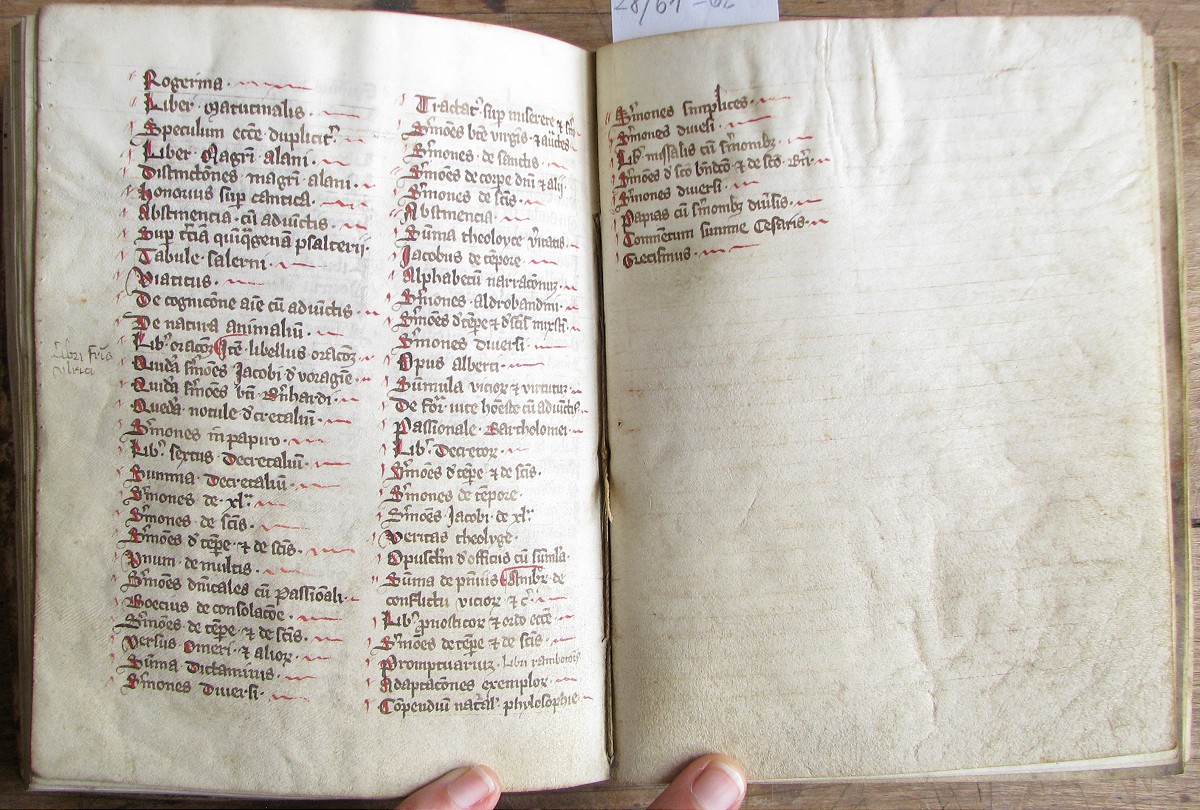 28/61
Rogerina
Liber matutinalis
Speculum ecce duplicit᷒
Liber Magr̄i alani
Distinctōnes magr̄i alani
Honorius sup cantica
Abstinencia cū adiūctis
Sup t̄ciā quīq̄genā psalterij
Tabule salerni
Viaticus
De cognicōne aīe cū adiūctis
De natura animaliū
Lib᷒ oracoꝝ Itē libellus oracoꝝ
Quidā s̄mōes Jacobi d᷒ voragīe
Quidā s̄mōes bt̄i Bn̄hardi
Quedā notule d᷒cretaliū
libri
S᷒mones in papiro
Lib᷒ sextus Decretaliū
Summa Decretaliū
S᷒mones de xlᵃ
S᷒mones de sc̄is
S᷒mōes d᷒ tēpe ⁊ de sc̄is
Vnum de multis
S᷒mōes dn̄icales cū Passionali
Boecius de consolacōe
S᷒mōes de tēpe ⁊ de sc̄is
Versus Omeri ⁊ alioꝝ
Sūma Dictaminis
S᷒mones Diuersi
Tractat᷒ sup miserere ⁊
S᷒mōes bt̄e virgīs ⁊ aūctes
S᷒mones de sanctis
S᷒mōes de corpe dn̄i ⁊ alij
S᷒mones de sc̄is
Abstinencia
Sūma theoloyce v᷒itatis
Jacobus de tēpore
Alphabetū narracōnuꝫ
S᷒mones Aldrobandini
S᷒mōes d᷒ tēpe ⁊ d᷒ sc̄is mixti
S᷒mones diuersi
Opus alberti
Sūmula vicioꝝ ⁊ virtutuꝫ
De for᷒ vite hōeste cū adiūctis
Passionale Bartholomei
Lib᷒ Decretoꝝ
S᷒mōes d᷒ tēpe ⁊ de sc̄is
S᷒mones de tēpore
S᷒mōes Jacobi de xlᵃ
Veritas theolyge
Opusclm̄ d᷒ officijs cū sūmla
Sūma de pn̄nijs Ambr᷒ de
conflictu vicioꝝ ⁊ c᷒
Lib᷒ pronosticoꝝ ⁊ ordo ecc̄e
S᷒mōes de tēpe ⁊ de sc̄is
Promptuariuꝫ libri
Adaptacōnes exemploꝝ
Cōpendiū nat᷒al᷒ phylosophie
S᷒mones simplices
S᷒mones diuesi
Lib᷒ missalis cū s᷒monibꝫ
S᷒mōes d᷒ sc̄o bn̄dc̄o ⁊ de sc̄o Bn̄
S᷒mones diuersi
Papias cū s᷒monibꝫ
Commētum summe Cesaris
Grecismus